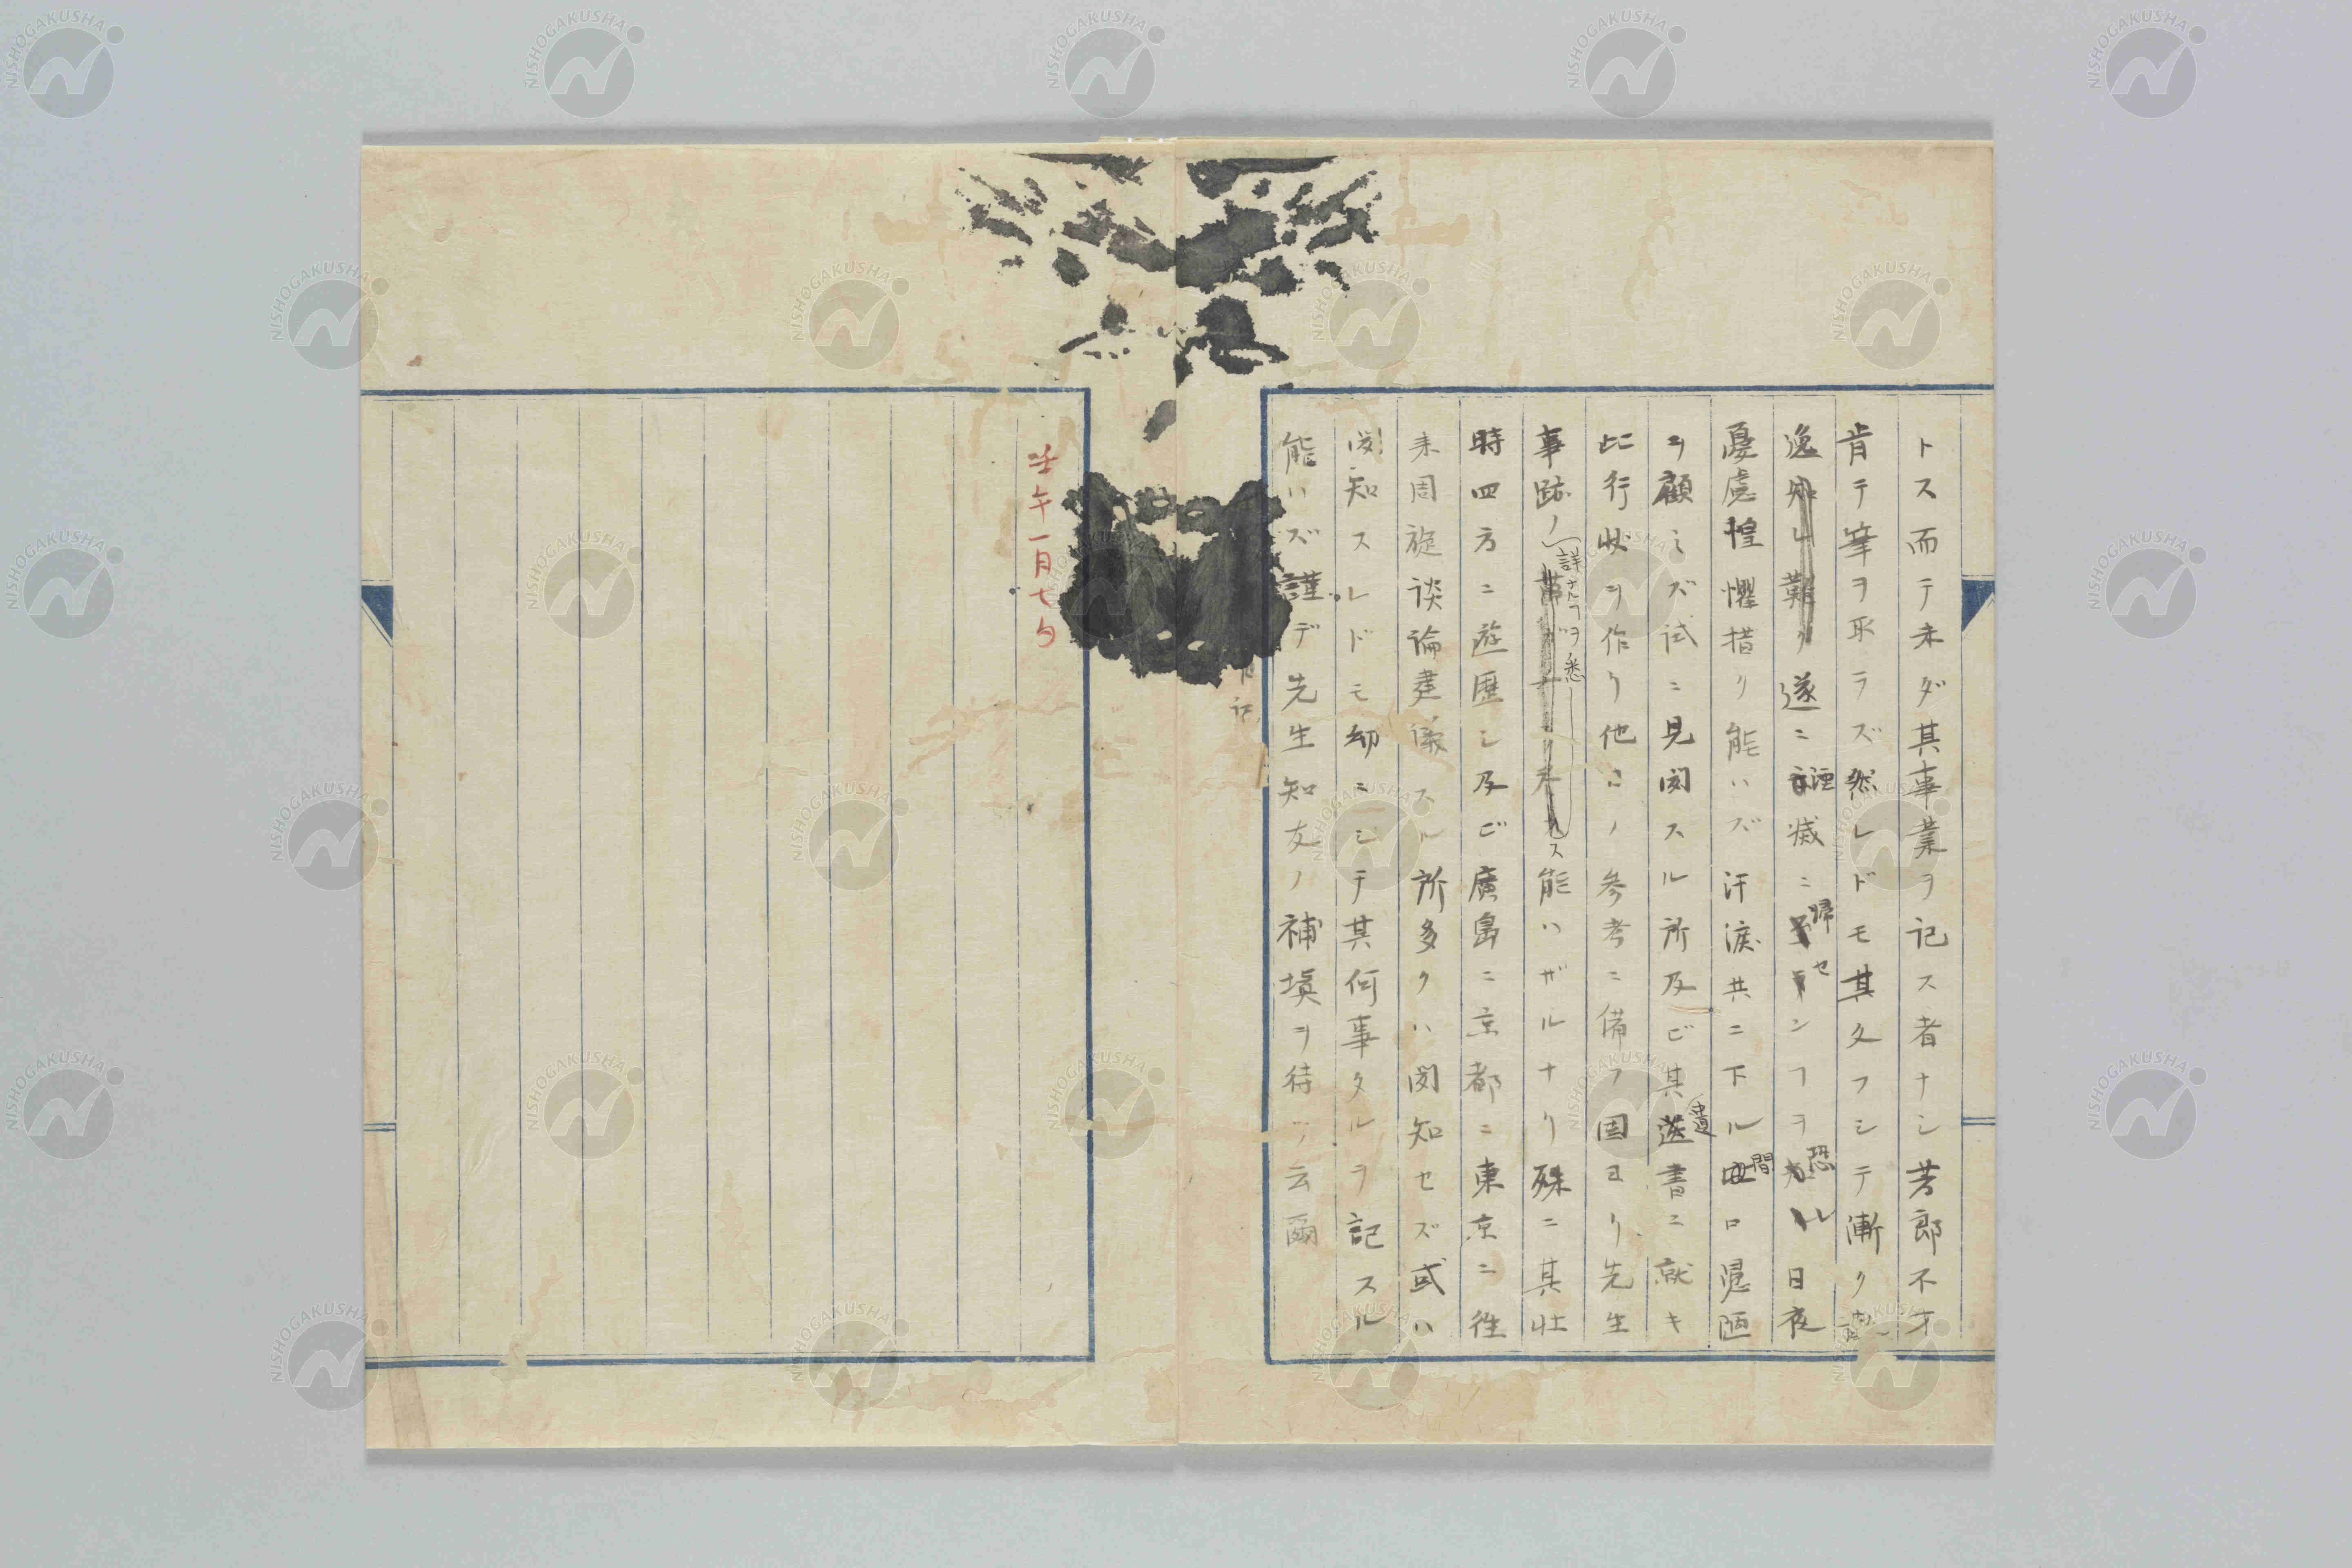 トス而テ未ダ其事業ヲ記ス者ナシ芳郎不才
肯テ筆ヲ取ラズ然レドモ其久フシテ漸ク
逸知レ難ク遂ニ湮滅ニ帰センヿヲ恐ル日夜
憂慮惶懼措リ能ハズ汗涙共ニ下ル間ロ愚陋
ヲ顧ミズ試ニ見聞スル所及ビ其遺書ニ就キ
此行状ヲ作リ他日ノ参考ニ備フ固ヨリ先生
事跡ノ詳ナルヿヲ悉ス能ハザルナリ殊ニ其壮
時四方ニ遊歴シ及ビ廣島ニ京都ニ東京ニ往
来周旋談論建儀スル所多クハ聞知セズ或ハ
聞知スレドモ幼ニシテ其何事タルヲ記スル
能ハズ謹デ先生知友ノ補塡ヲ待ツ云爾
壬午一月七夕
NISHOGAKUSHA